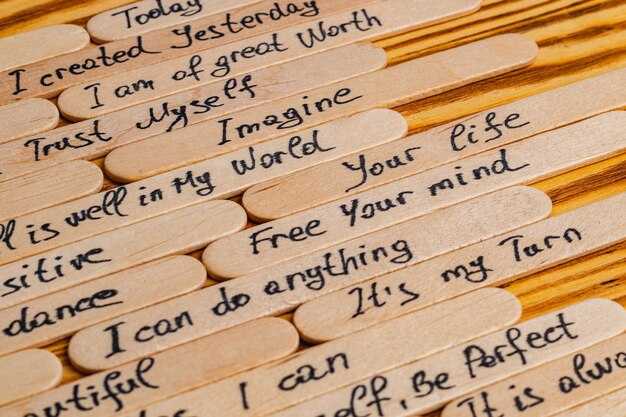 Today
I created Yesterday
I am of great Worth
Trust Myself
Imagine
ll is well in My World
Your life
Free Your mind
sitive
I can do anything
It's my Turn
dance
I can
autiful
self, Be Perfect
It is alwa